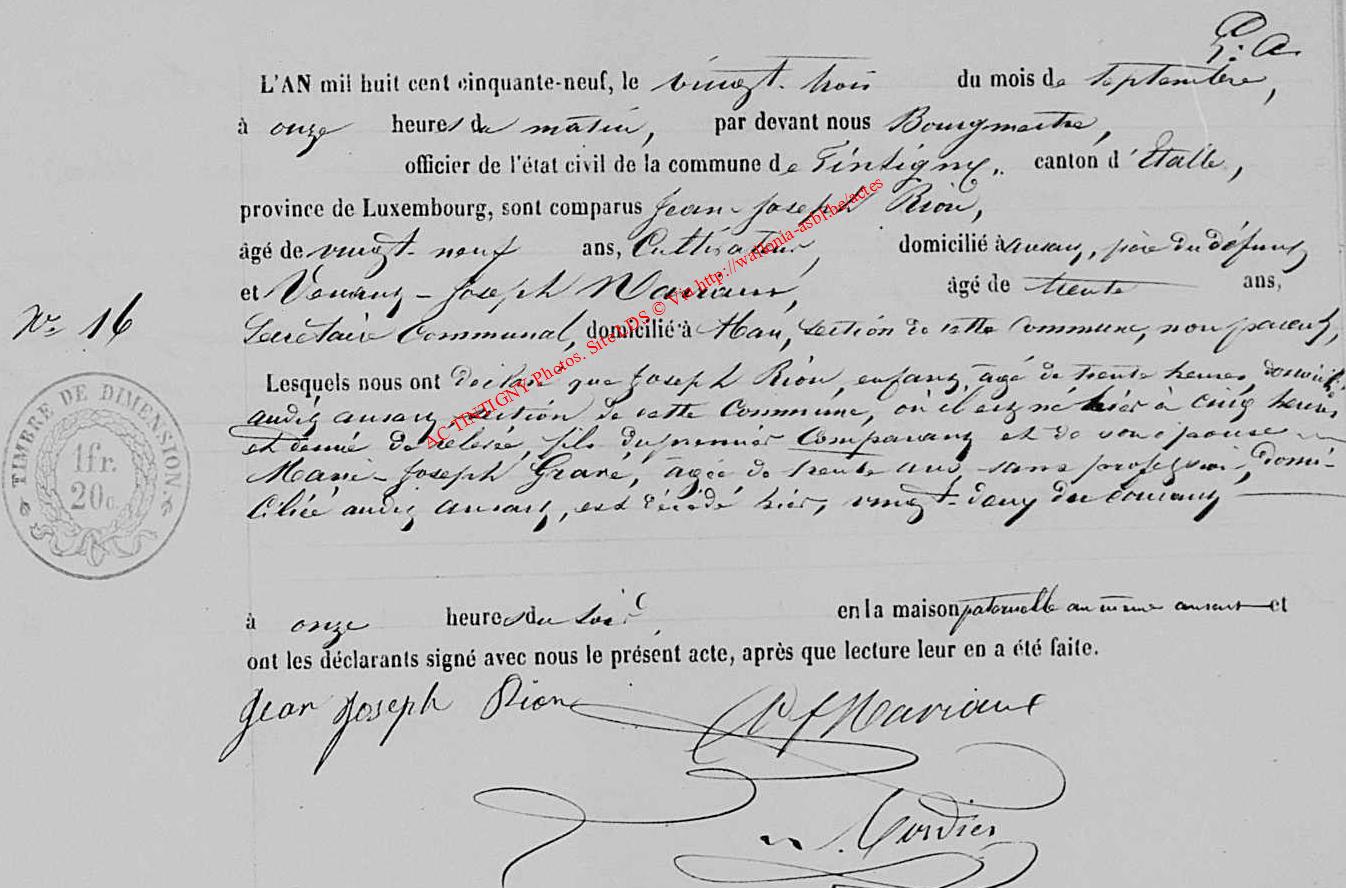 P. A.
L'AN mil huit cent cinquante-neuf, le vingt-trois du mois de septembre,
à onze heures du matin, par devant nous Bourgmestre,
officier de l'état civil de la commune de Tintigny, canton d'Etalle,
province de Luxembourg, sont comparus Jean-Joseph Rion,
âgé de vingt-neuf ans, Cultivateur, domicilié à ansart, père du défunt
et Venant-Joseph Mariaux, âgé de trente ans,
N° 16
Secrétaire Communal, domicilié à Han, section de cette Commune, non parent,
Lesquels nous ont déclaré que Joseph Rion, enfant, âgé de trente heures, domicilié
audit ansart, section de cette Commune, où il est né hier à cinq heures
et demie de relevée, fils du premier Comparant et de son épouse
Marie-Joseph Gravé, âgée de trente ans sans profession, domi-
ciliée audit ansart, est décédé hier, vingt-deux du courant
à onze heures du soir, en la maison paternelle au même ansart et
ont les déclarants signé avec nous le présent acte, après que lecture leur en a été faite.
Jean Joseph Rion
VJMariaux
Cordier
TIMBRE DE DIMENSION.
1fr.
20c.
ACTINTIGNY-Photos. Site LDS © Via http://wallonia-asbl.be/actes